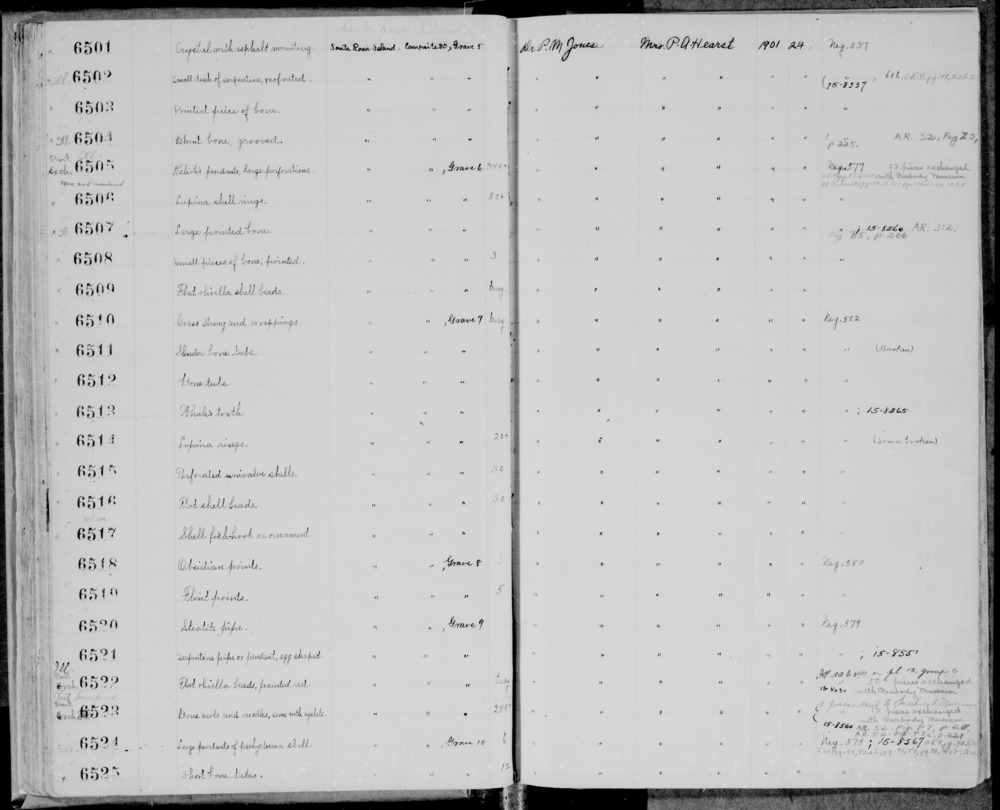 Santa Rosa Island
6501 Crystal with asphalt mounting. Santa Rosa Island, Campsite 30, Grave 5 Dr. P. M. Jones Mrs. P. A. Hearst 1901 24. Neg. 537
6502 Small disk of serpentine, perforated. " " " " " " " " " (15-8337
6503 Pointed piece of bone. " " " " " " " " " "
6504 Blunt bone, grooved. " " " " " " " " " A.R. 3:2, Fig
p 225.
Exch. 6505 pendants, large perforations. " " , Grave 6 " " " " " " Neg. 577 pieces exchanged
with Peabody Museum
6506 Lupina shell rings. " " " 80+ " " " " " " "
6507 Large pointed bone. " " " " " " " " " " ; 15-8560 AR. 3:2,
Fig 85, p. 206
6508 Small pieces of bone, pointed. " " " 3 " " " " " " "
6509 Flat olivella shell beads. " " " tray " " " " " "
6510 Grass string and wrappings. " " , Grave 7 tray " " " " " " Neg. 552
6511 Slender bone tube. " " " " " " " " " " (Broken)
6512 Bone tube. " " " " " " " " " "
6513 Whale's tooth " " " " " " " " " " ; 15-8265
6514 Lupina rings. " " " 20+ " " " " " " (Some broken)
6515 Perforated univalve shells. " " " 30 " " " " " " "
6516 Flat shell beads. " " " 30 " " " " " " "
6517 Shell fish-hook or ornament " " " " " " " " " "
6518 Obsidian points. " " , Grave 8 3 " " " " " " Neg. 580
6519 Flint points. " " " 5 " " " " " " "
6520 Steatite pipe. " " , Grave 9 " " " " " " Neg. 579
6521 Serpentine pipe or pendant, egg shaped. " " " " " " " " " " ; 15-8551
Ill.
Exch. 6522 Flat olivella beads, painted red " " " tray " " " " " " pl. 12, group 6
pieces exchanged
with Peabody Museum
6523 Bone awls and needles, some with eyelets. " " " " " " " " "
pieces exchanged
with Peabody Museum.
(15-8560 AR. 3:2
6524 Large pendants of pachydesma shell. " " , Grave 10 6 " " " " " " Neg. 578 ; 15-8567
6525 Short bone tubes. " " " 12 " " " " " " "